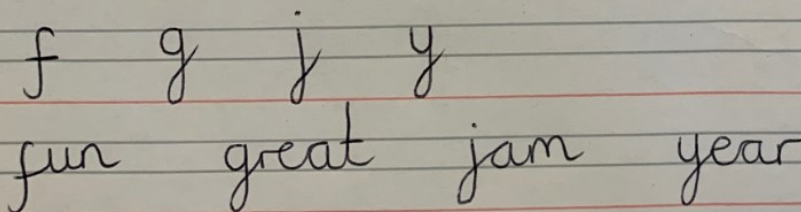 f g j y
fun great jam year